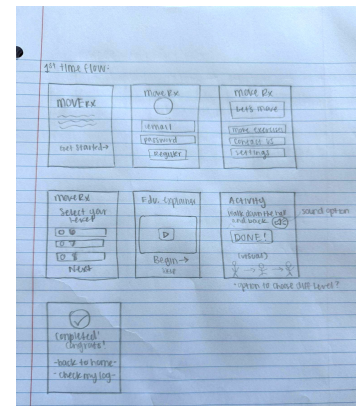 1st time flow:
MOVERX
Get started→
MoveRx
email
password
Register
Move Rx
Let's move
more exercises
contact us
settings
MoveRx
Select your
level
6
7
8
Next
Edu. Explainer
Begin→
Activity
Walk down the
and back
sound option
DONE!
(visual)
option to choose diff level?
Completed!
Congrats!
-back to home-
-check my log-